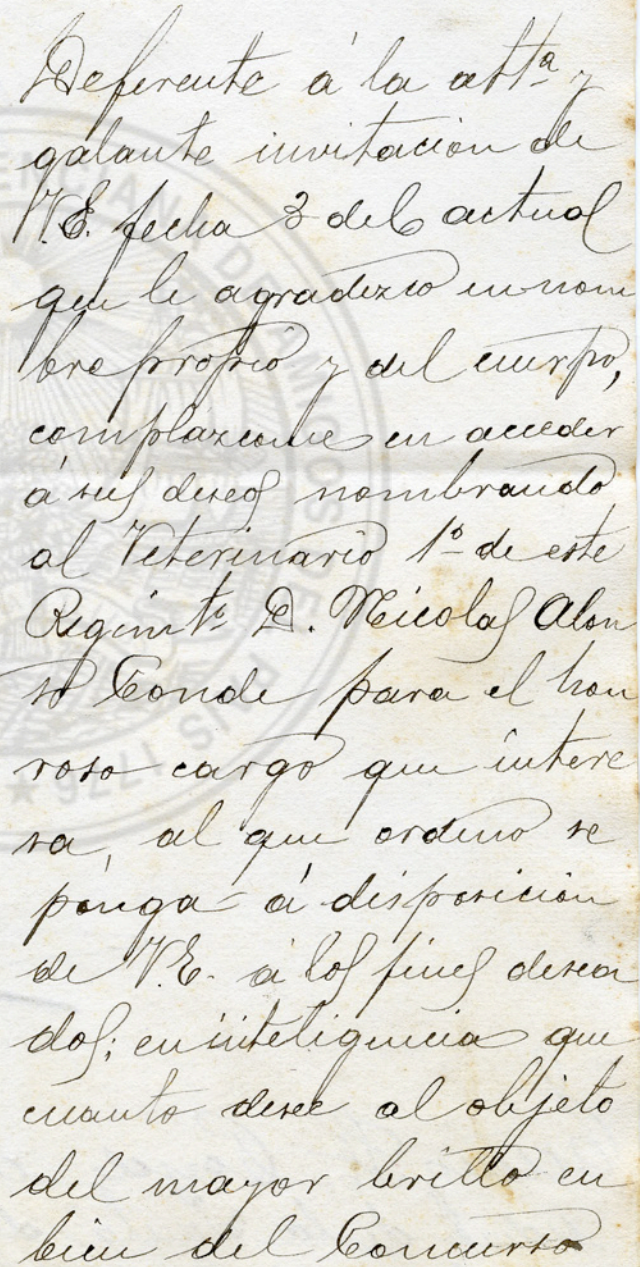 Deferente á la attª y
galante invitacion de
V.E. fecha 3 del actual
que le agradezco en nom
bre propio y del cuerpo,
complázcome en acceder
á sus deseos nombrando
al Veterinario 1º de este
Regimtº D. Nicolas Alon
so Conde para el hon
roso cargo que intere
sa, al que ordeno se
ponga á disposición
de V.E. á los fines desea
dos; en inteligencia que
cuanto desee al objeto
del mayor brillo en
bien del Concurso